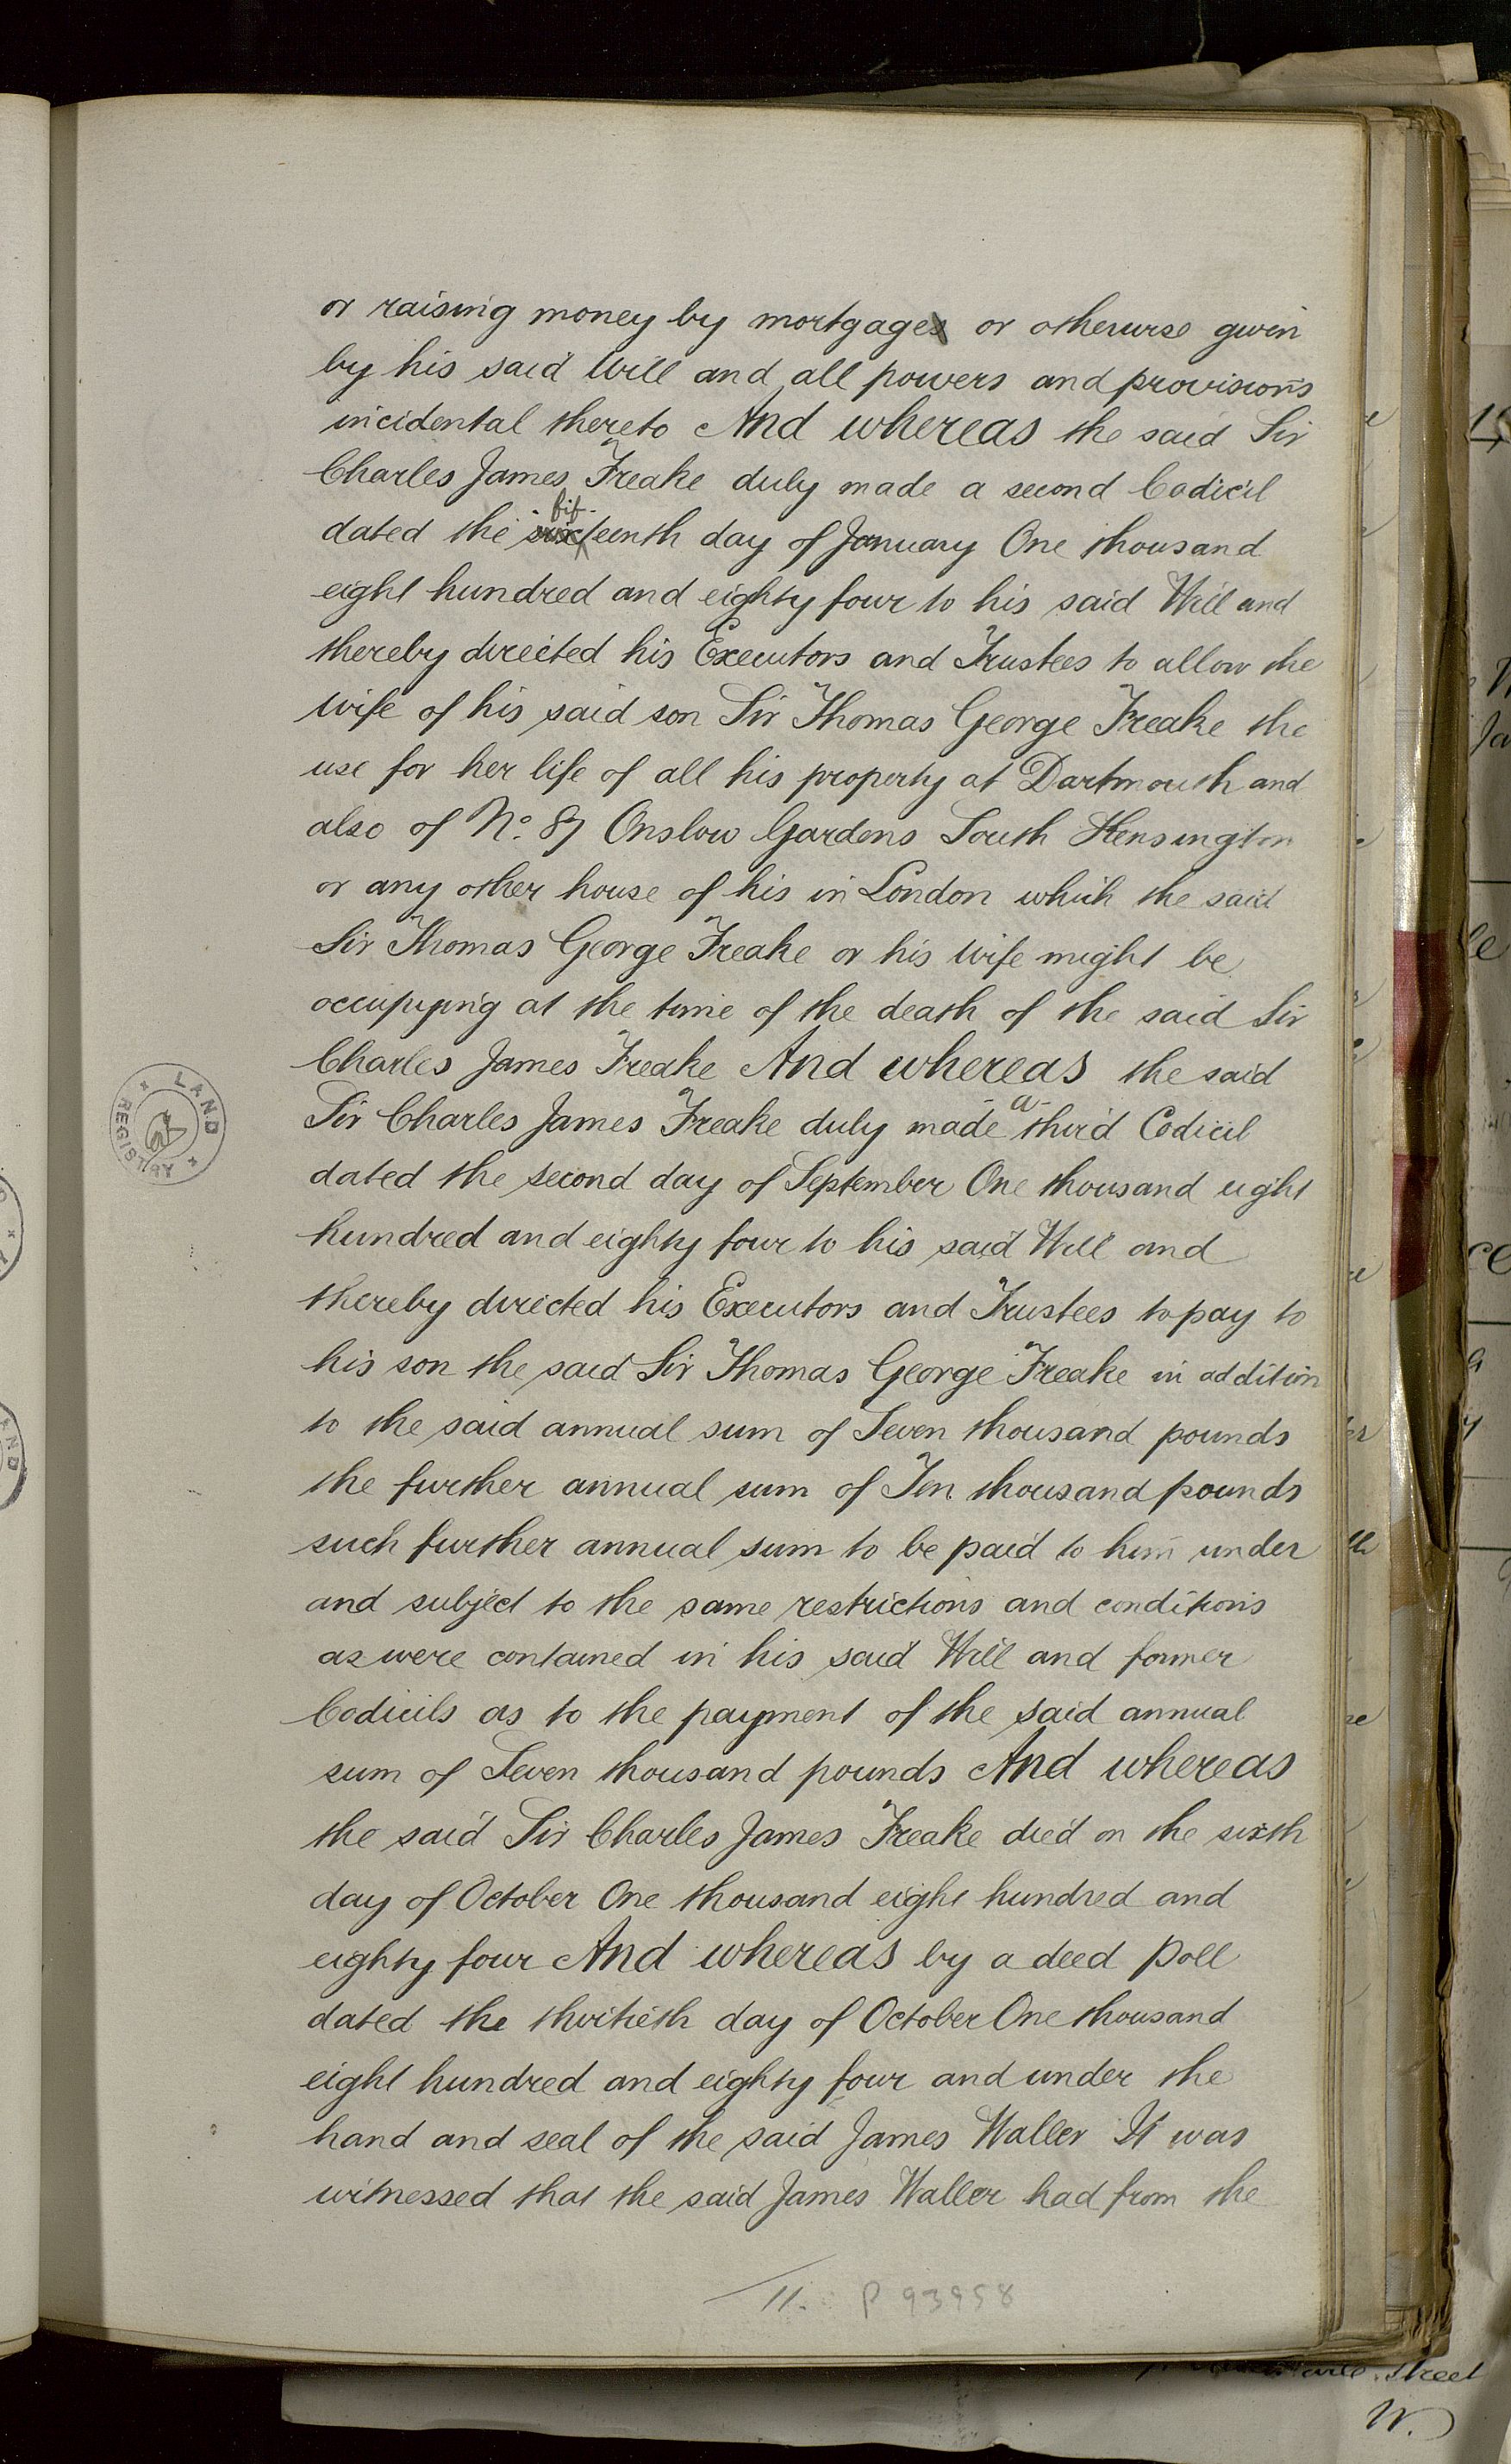 or raising money by mortgage or otherwise given
by his said Will and all powers and provisions
incidental thereto And whereas the said Sir
Charles James Freake duly made a second Codicil
dated the fifteenth day of January One thousand
eight hundred and eighty four to his said Will and
thereby directed his Executors and Trustees to allow the
wife of his said son Sir Thomas George Freake the
use for her life of all his property at Dartmouth and
also of No. 87 Onslow Gardens South Kensington
or any other house of his in London which the said
Sir Thomas George Freake or his wife might be
occupying at the time of the death of the said Sir
Charles James Freake And whereas the said
Sir Charles James Freake duly made a third Codicil
dated the second day of September One thousand eight
hundred and eighty four to his said Will and
thereby directed his Executors and Trustees to pay to
his son the said Sir Thomas George Freake in addition
to the said annual sum of Seven thousand pounds
the further annual sum of Ten thousand pounds
such further annual sum to be paid to him under
and subject to the same restrictions and conditions
as were contained in his said Will and former
Codicils as to the payment of the said annual
sum of Seven thousand pounds And whereas
the said Sir Charles James Freake died on the sixth
day of October One thousand eight hundred and
eighty four And whereas by a deed poll
dated the thirtieth day of October One thousand
eight hundred and eighty four and under the
hand and seal of the said James Waller It was
witnessed that the said James Waller had from the
11. P 93958
LAND REGISTRY
street
W.